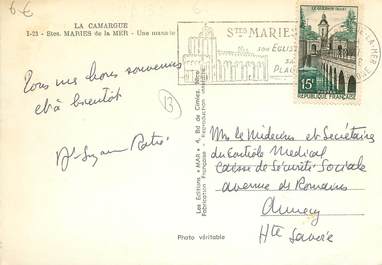 6€
LA CAMARGUE
I-21 - Stes. MARIES de la MER - Une manade
STES MARIES
SON EGLISE
SA
PLAGE
LE QUESNOY (Nord)
15F
REPUBLIQUE FRANÇAISE
Tous nos bons souvenirs
et à bientôt
13
Les Editions "MAR" 4, Bd de Cimiez, Nice
Fabrication Française - Reproduction interdite
Mrs les Médecins et Secrétaires
du Contrôle Medical
Caisse de Sécurité Sociale
avenue des Romains
Annecy
Hte Savoie
Photo véritable